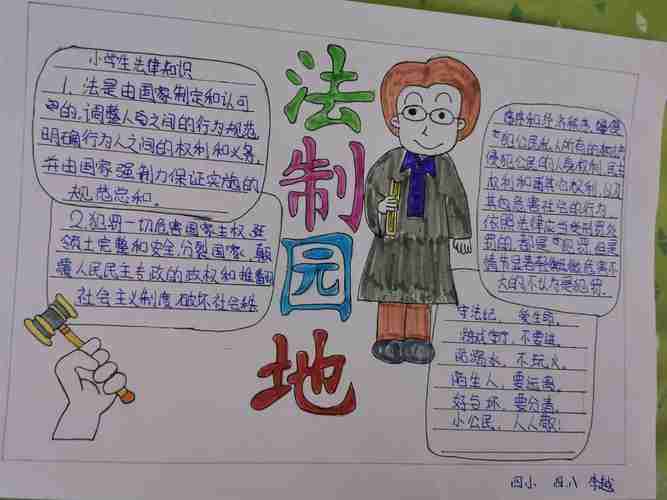 小学生法律知识
1、法是由国家制定和认可
的,调整人与之间的行为规范
明确行为人之间的权利和义务,
并由国家强制力保证实施的
规范总和。
2.犯罪一切危害国家主权
领土完整和安全,分裂国家、颠
覆人民民主专政的政权和推翻
社会主义制度,破坏社会
法
制
园
地
犯公民私人所有的
侵犯公民的人身权利,民主
权利和其他权利,以及
其他危害社会的行为,
依照法律应当受刑罚处
罚的,都是犯罪,但是
情节显著轻微危害不
大的,不认为是犯罪。
守法纪, 爱生命,
游戏厅, 不要进,
不玩火,
陌生人,要远离,
好与坏,要分清,
小公民,人人
四小 四八 李越